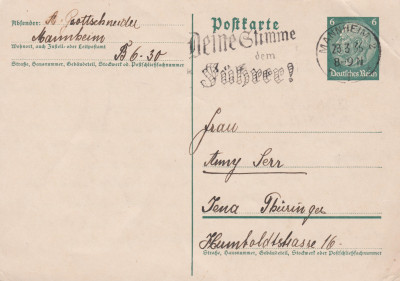 Absender: A. Gottschneider
Mannheim
Wohnort, auch Zustell- oder Leitpostamt
B 6-30
Straße, Hausnummer, Gebäudeteil, Stockwerk od. Postschließfachnummer
Postkarte
Deine Stimme
dem
Führer!
MANNHEIM
6 6
Deutsches Reich
Frau
Anny Serr
Jena Thüringer
Humboldtstrasse 16.
Straße, Hausnummer, Gebäudeteil, Stockwerk oder Postschließfachnummer